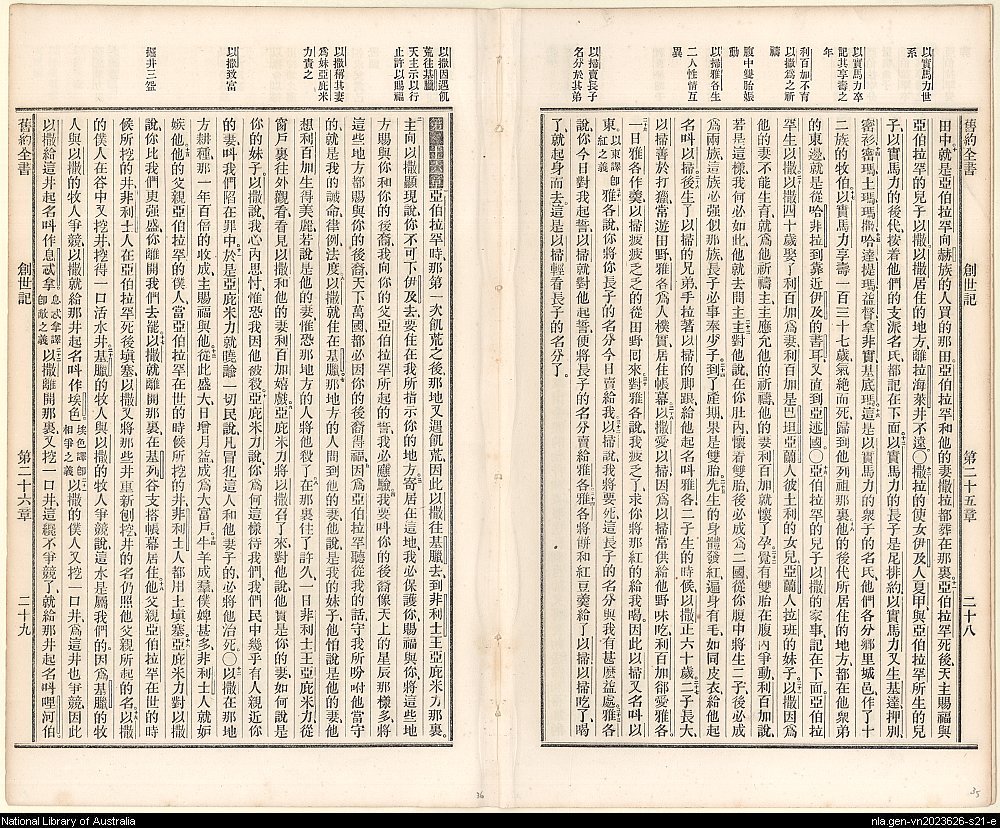 以實馬力世系
以實馬力卒記其享壽之年
利百加不育以撒爲之祈禱
腹中雙胎娠動
以掃雅各生二人性情互異
以掃賣長子名分於其弟
舊約全書 創世記 第二十五章 二十八
田中就是亞伯拉罕向赫族的人買的那田亞伯拉罕和他的妻撒拉都葬在那裏亞伯拉罕死後天主賜福與
亞伯拉罕的兒子以撒以撒居住的地方離拉海萊井不遠〇撒拉的使女伊及人夏甲與亞伯拉罕所生的兒
子以實馬力的後代按着他們的支派名氏都記在下面以實馬力的長子是尼排約以實馬力又生基達押別
密衫密瑪土瑪瑪撒哈達提瑪益督拿非實基底瑪這是以實馬力的衆子的名氏他們各分鄉里城邑作了十
二族的牧伯以實馬力享壽一百三十七歲氣絕而死歸到他列祖那裏他的後代所居住的地方都在他衆弟
的東邊就是從哈非拉到靠近伊及的書珥又直到亞述國〇亞伯拉罕的兒子以撒的家事記在下面亞伯拉
罕生以撒以撒四十歲娶了利百加爲妻利百加是巴坦亞蘭人彼土利的女兒亞蘭人拉班的妹子以撒因爲
他的妻不能生育就爲他祈禱主主應允他的祈禱他的妻利百加就懷了孕覺有雙胎在腹內爭動利百加說
若是這樣我何必如此他就去問主主對他說在你肚內懷着雙胎後必成爲二國從你腹中將生二子後必成
爲兩族這族必强似那族長子必事奉少子到了產期果是雙胎先生的身體發紅遍身有毛如同皮衣給他起
名叫以掃後生了以掃的兄弟手拉著以掃的脚跟給他起名叫雅各二子生的時候以撒正六十歲二子長大
以掃善於打獵常遊田野雅各爲人樸實居住帳幕以撒愛以掃因爲以掃常供給他野味吃利百加卻愛雅各
一日雅各作羹以掃疲疲乏乏的從田野回來對雅各說我疲乏了求你將那紅的給我喝因此以掃又名叫以
東以東譯卽紅之義雅各說你將你長子的名分今日賣給我以掃說我將要死這長子的名分與我有甚麼益處雅各
說你今日對我起誓以掃就對他起誓便將長子的名分賣給雅各雅各將餅和紅豆羹給了以掃以掃吃了喝
了就起身而去這是以掃輕看長子的名分了
35
以撒因遇飢荒往基臘
天主示以行止許以賜福
以撒稱其妻爲妹亞庇米力責之
以撒致富
掘井三｡
舊約全書 創世記 第二十六章 二十九
第二十六章亞伯拉罕時那第一次飢荒之後那地又遇飢荒因此以撒往基臘去到非利士王亞庇米力那裏
主向以撒顯現說你不可下伊及去要住在我所指示你的地方寄居在這地我必保護你賜福與你將這些地
方賜與你和你的後裔我向你的父亞伯拉罕所起的誓我必應驗我要叫你的後裔像天上的星辰那樣多將
這些地方都賜與你的後裔天下萬國都必因你的後裔得福因爲亞伯拉罕聽從我的話守我所吩咐他當守
的就是我的誡命律例法度以撒就住在基臘那地方的人問到他的妻他說是我的妹子他怕說是他的妻他
想利百加生得美麗若說是他的妻惟恐那地方的人將他殺了在那裏住了許久一日非利士王亞庇米力從
窗戶裏往外觀看看見以撒和他的妻利百加嬉戲亞庇米力將以撒召了來對他說他實是你的妻如何說是
你的妹子以撒說我心內思忖惟恐我因他被殺亞庇米力說你爲何這樣待我們我們民中幾乎有人親近你
的妻叫我們陷在罪中於是亞庇米力就曉諭一切民說凡冒犯這人和他妻子的必將他治死〇以撒在那地
方耕種那一年百倍的收成主賜福與他從此盛大日增月益成爲大富戶牛羊成羣僕婢甚多非利士人就妬
嫉他他的父親亞伯拉罕的僕人當亞伯拉罕在世的時候所挖的井非利士人都用土填塞亞庇米力對以撒
說你比我們更强盛你離開我們去罷以撒就離開那裏在基列谷支搭帳幕居住他父親亞伯拉罕在世的時
候所挖的井非利士人在亞伯拉罕死後填塞以撒又將那些井重新刨挖井的名仍照他父親所起的名以撒
的僕人在谷中又挖井挖得一口活水井基臘的牧人與以撒的牧人爭競說這水是屬我們的因爲基臘的牧
人與以撒的牧人爭競以撒就給那井起名叫作埃色埃色譯卽相爭之義以撒的僕人又挖一口井爲這井也爭競因此
以撒給這井起名叫作息忒拿息忒拿譯卽敵之義以撒離開那裏又挖一口井這纔不爭競了就給那井起名叫哩河伯
36
National Library of Australia
nla.gen-vn2023626-s21-e